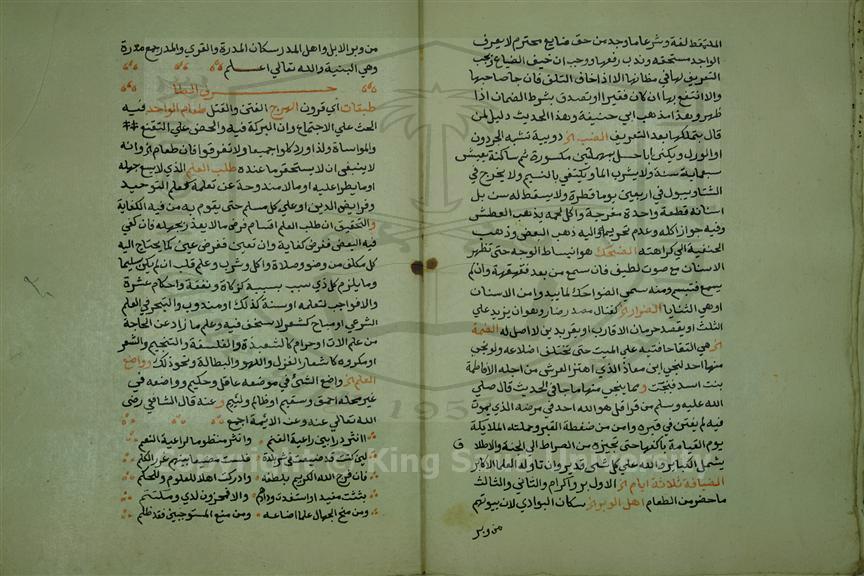 الملتقط لغة وشرعا ما وجد من حق ضايع محترم لا يعرف
الواجد مستحقه وندب رفعها ووجب ان خيف الضياع ويجب
التعريف لها في مظانها الا اذا خاف التلف فان جا صاحبها
والا انتفع بها ان كان فقيرا او تصدق بشرط الضمان اذا
ظهر وهذا مذهب ابي حنيفة وهذا الحديث دليل لمن
قال بتملكها بعد التعريف الضب الخ دويبة تشبه الحردون
او الورل ويكنى ابا حسل بمهملتين مكسورة ثم ساكنة يعيش
سبعماية سنة ولا يشرب الما ويكتفي بالنسيم ولا يخرج في
الشتا ويبول في اربعين يوما قطرة ولا يسقط له سن بل
اسنانه قطعة واحدة مفرجة واكل لحمه يذهب العطش
وفيه جواز اكله وعدم تحريمه واليه ذهب البعض وذهب
الحنفية الى كراهته الضحك هو انبساط الوجه حتى تظهر
الاسنان مع صوت لطيف فان سمع من بعد فقهقهة وان لم
يسمع فتبسم ومنه سمي الضواحك لما يبدو من الاسنان
او هي الثنايا الضرار الخ كقتال مصدر ضار وهو ان يزيد علي
الثلث او يقصد حرمان الاقارب او يقر بدين لا اصل له الضمة
الخ هي التقا حافتيه علي الميت حتى تختلف اضلاعه ولو نجى
منها احد لنجي ابن معاذ الذي اهتز العرش من اجله الا فاطمة
بنت اسد فنجت ومما ينجي منها ما جا في الحديث قال صلي
الله عليه وسلم من قرا قل هو الله احد في مرضه الذي يموت
فيه لم يفتن في قبره وامن من ضغطة القبر وحملته الملايكة
يوم القيامة باكفها حتى تجيزه من الصراط الى الجنة والاطلاق
يشمل الكباير والله علي كل شي قدير وان تاوله العلما الاكابر
الضيافة ثلاثة ايام الخ الاول بر واكرام والثاني والثالث
ما حضر من الطعام اهل الوبر الخ سكان البوادي لان بيوتهم
من وبر
من وبر الابل واهل المدر سكان المدرة والقري والمدر جمع مدرة
وهي البنية والله تعالي اعلم
حرف الطا
طبقات اي قرون الهرج الفتن والقتل طعام الواحد فيه
الحث علي الاجتماع وان البركة فيه والحض علي التقنع
والمواساة ولذا ورد كلوا جميعا ولا تفرقوا فان طعام الخ وانه
لا ينبغي ان لا يستحقر ما عنده طلب العلم الذي لا يسع جهله
او ما يطرا عليه او ما لا مندوحة عن تعلمه كعلم التوحيد
وفرايض الدين او علي كل مسلم حتى يقوم به من فيه الكفاية
والتحقيق ان طلب العلم اقسام فرض ما لا يعذر بجهله فان كفي
فيه البعض ففرض كفاية وان تعين ففرض عين كما يحتاج اليه
كل مكلف من وضو وصلاة واكل وشرب وعلم قلب ان لم يكن سليما
وما يلزم كل ذي سبب بسببه كزكاة ونفقة واحكام عشرة
والا فواجب لتعلمه او سنة كذلك او مندوب والتبحر في العلم
الشرعي او مباح كشعر لا سخف فيه وعلم ما زاد عن الحاجة
من علم الات او حرام كالشعبذة والفلسفة والتنجيم والشعر
او مكروه كاشعار الغزل واللهو والبطالة ونحو ذلك وواضع
العلم الخ واضع الشئ في موضعه عاقل وحكيم وواضعه في
غير محله احمق وسقيم او ظالم ولئيم وعنه قال الشافي رضي
الله تعالي عنه وعن الائمة اجمع
اانثر درا بين راعية الغنم وانثر منظوما لراعية النعم
لين كنت قد ضيعت في شر بلدة فلست مضيعا بينهم غرر الكلم
فان فرج الله الكريم بلطفه وادركت اهلا للعلوم وللحكم
بثثت مفيدا واستفدت ودادهم والا فمخزون لدي ومكتتم
ومن منح الجهال علما اضاعه ومن منع المستوجبين فقد ظلم
Copyright © King Saud University
195